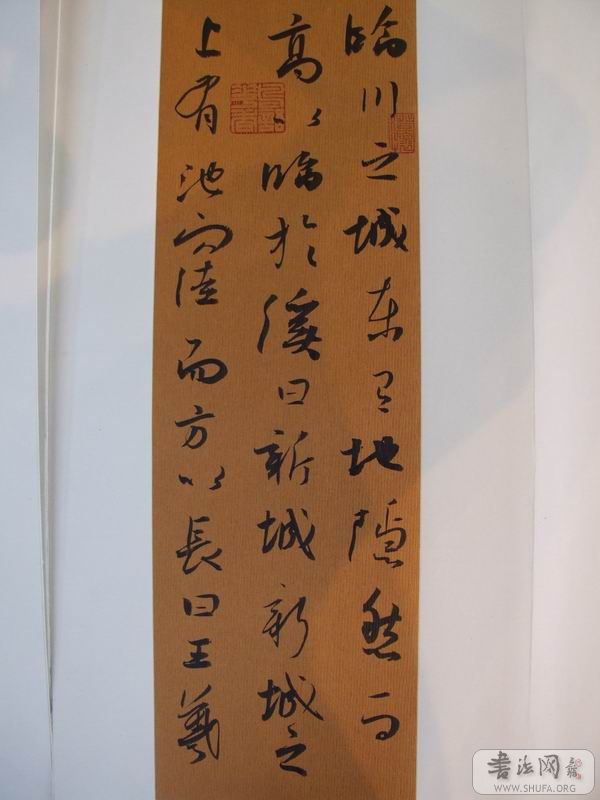 臨川之城東有地隱然而
高以臨於溪曰新城新城之
上有池窪而方以長曰王羲
书法网
WWW.SHUFA.ORG